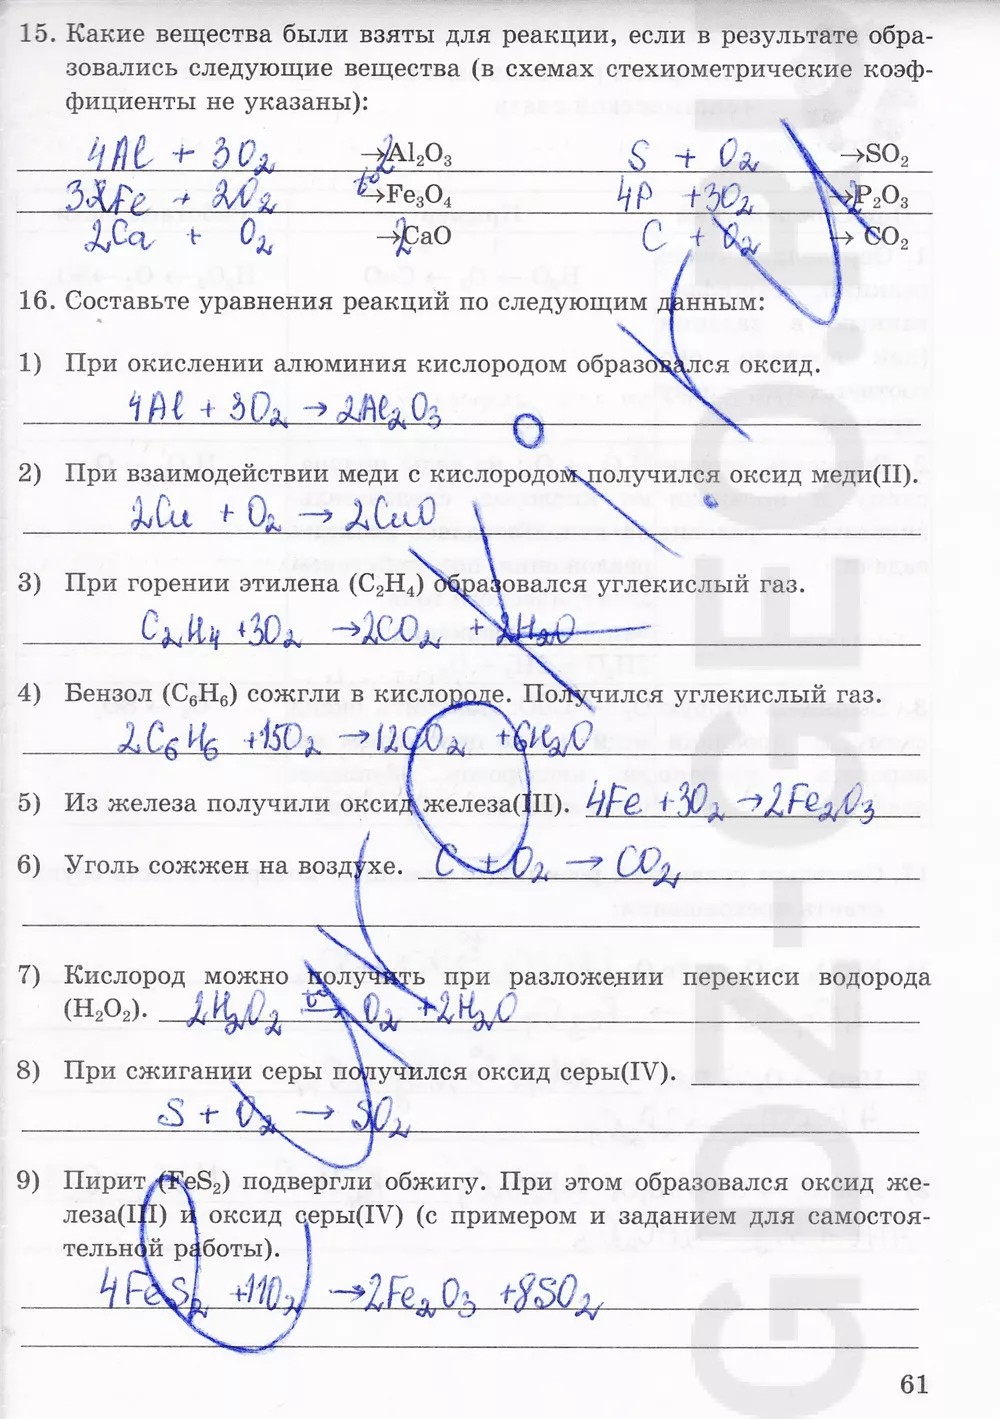 15. Какие вещества были взяты для реакции, если в результате обра-
зовались следующие вещества (в схемах стехиометрические коэф-
фициенты не указаны):
4Al + 3O₂ →2Al₂O₃ S + O₂ →SO₂
3Fe + 2O₂ t° →Fe₃O₄ 4P +3O₂ →2P₂O₃
2Ca + O₂ →2CaO C + O₂ → CO₂
16. Составьте уравнения реакций по следующим данным:
1) При окислении алюминия кислородом образовался оксид.
4Al + 3O₂ → 2Al₂O₃
2) При взаимодействии меди с кислородом получился оксид меди(II).
2Cu + O₂ → 2CuO
3) При горении этилена (C₂H₄) образовался углекислый газ.
C₂H₄ +3O₂ →2CO₂ + 2H₂O
4) Бензол (C₆H₆) сожгли в кислороде. Получился углекислый газ.
2C₆H₆ +15O₂ →12CO₂ +6H₂O
5) Из железа получили оксид железа(III). 4Fe +3O₂ →2Fe₂O₃
6) Уголь сожжен на воздухе. C + O₂ → CO₂
7) Кислород можно получить при разложении перекиси водорода
(H₂O₂). 2H₂O₂ t° → O₂ +2H₂O
8) При сжигании серы получился оксид серы(IV).
S + O₂ → SO₂
9) Пирит (FeS₂) подвергли обжигу. При этом образовался оксид же-
леза(III) и оксид серы(IV) (с примером и заданием для самостоя-
тельной работы).
4FeS₂ +11O₂ →2Fe₂O₃ +8SO₂
61
GDZ-GEO.RU